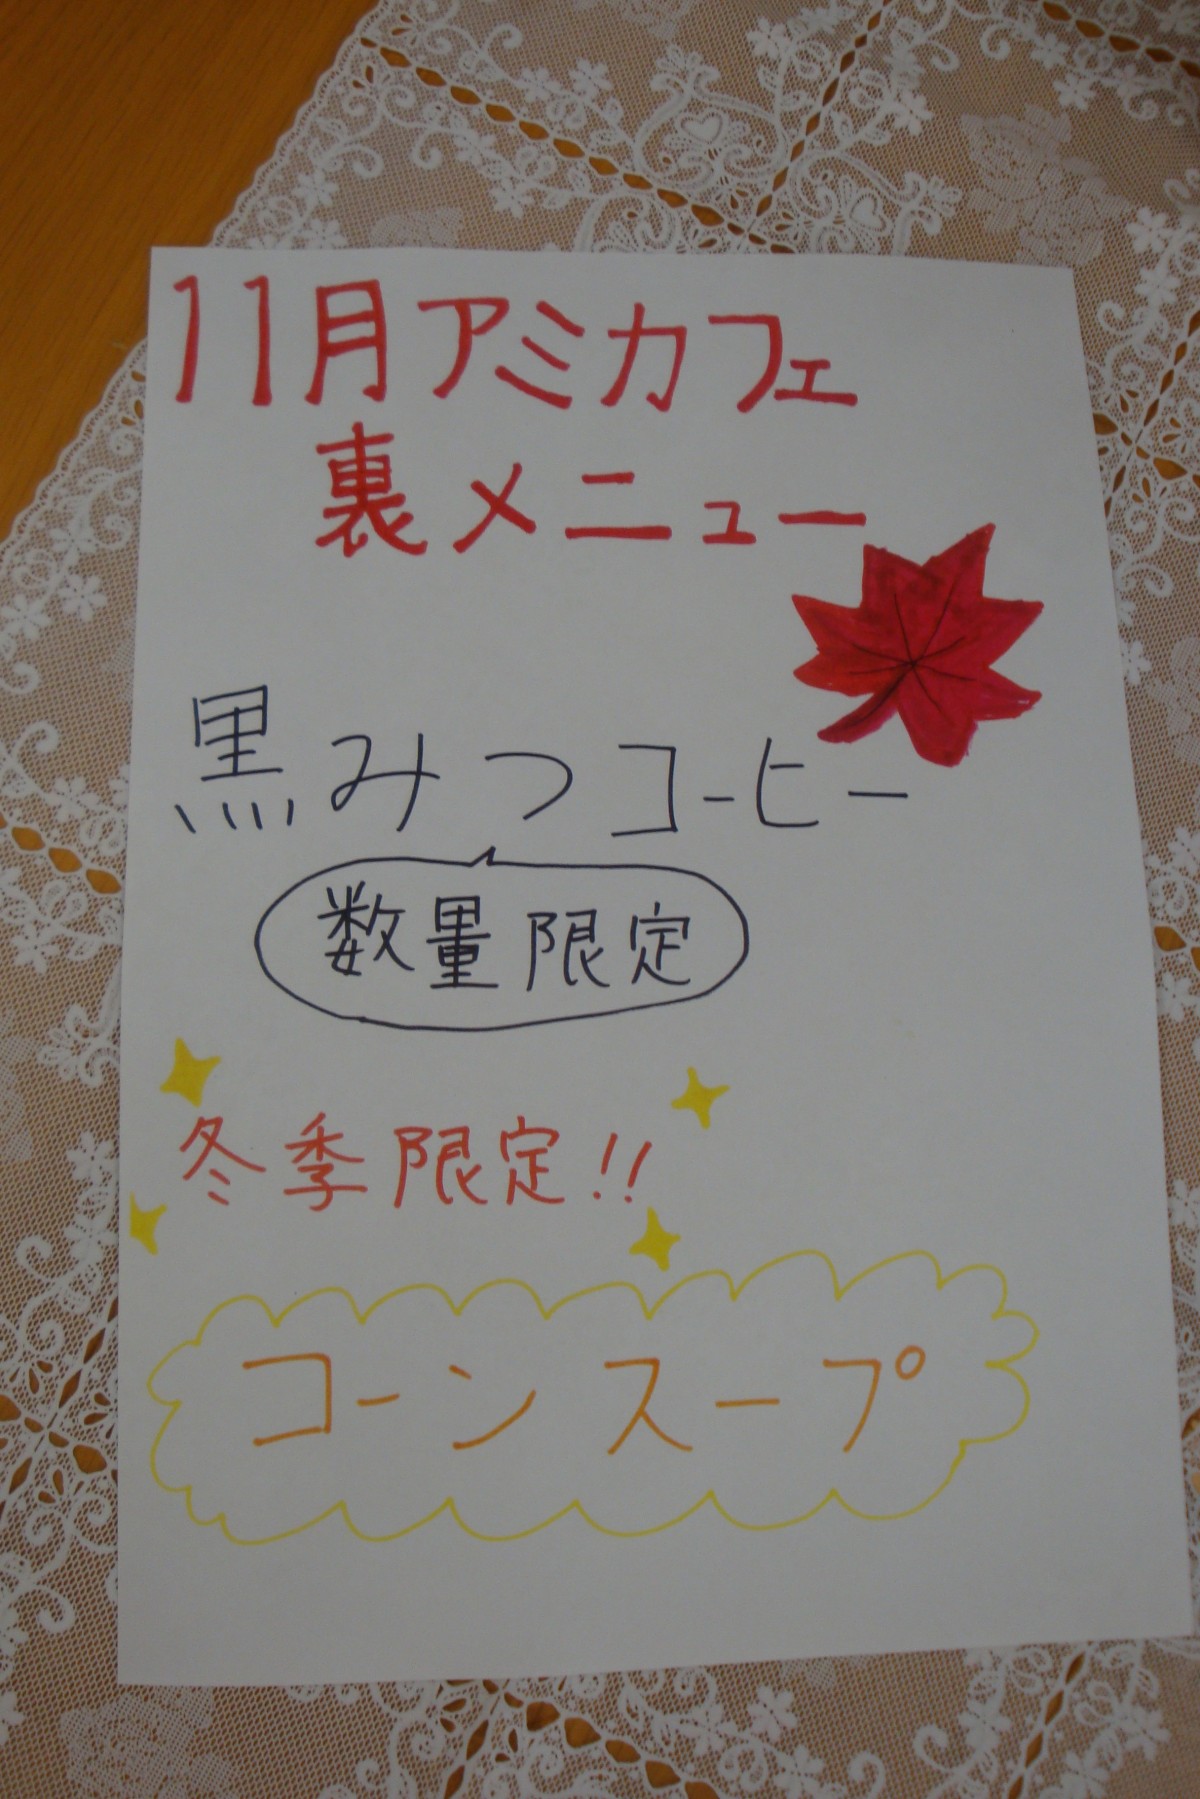 11月アミカフェ
裏メニュー
黒みつコーヒー
数量限定
冬季限定!!
コーンスープ